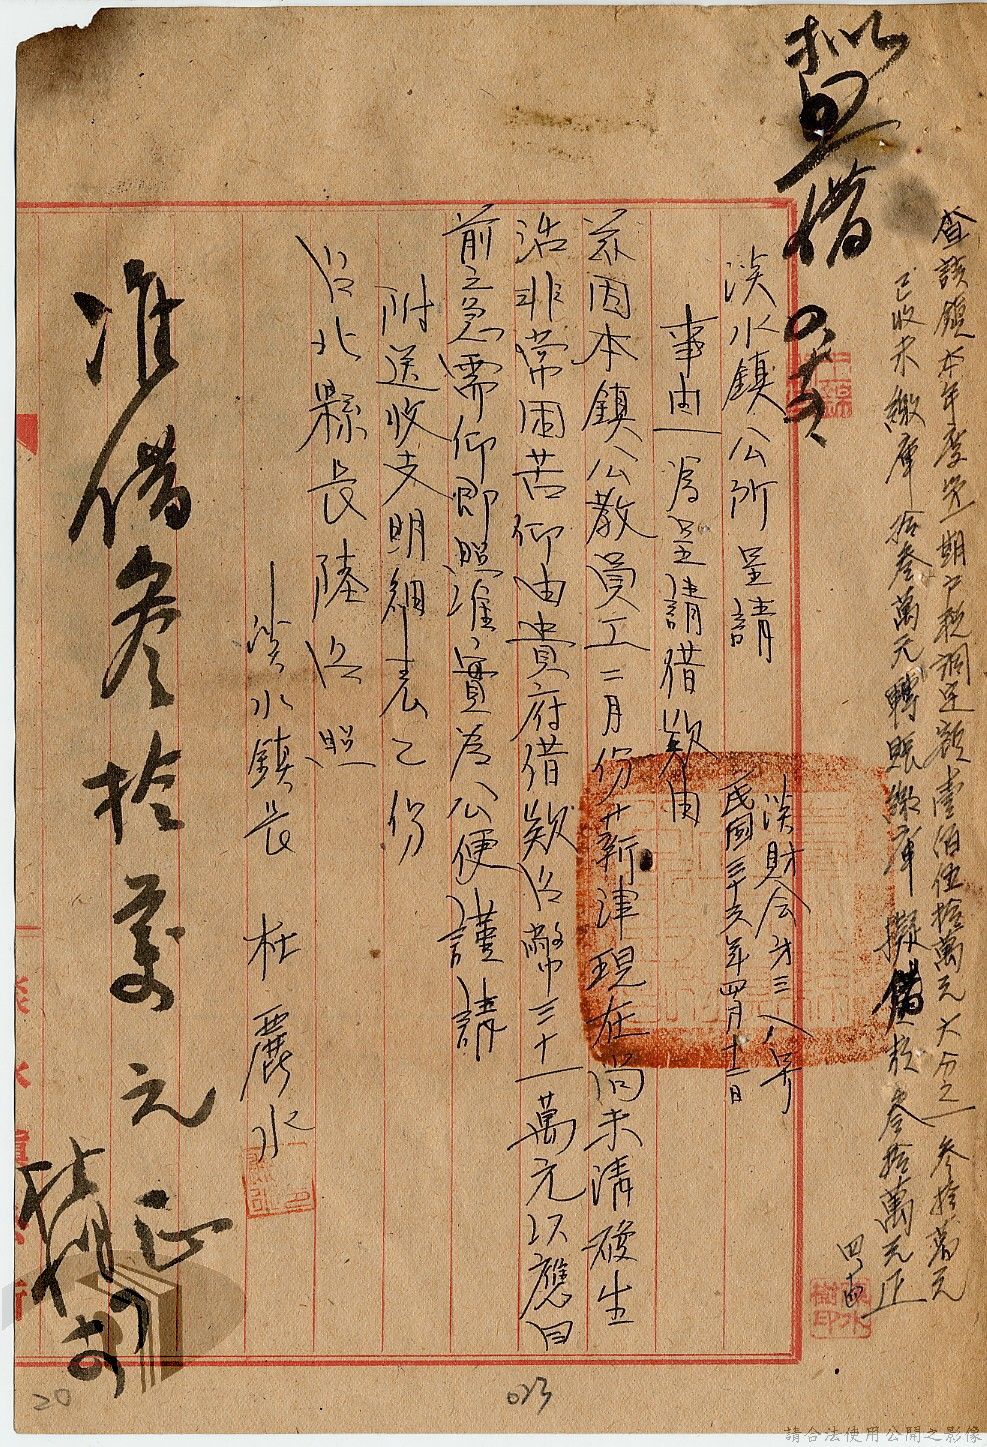 查該鎮本年度第一期戶稅調定額壹佰伍拾萬元 六分之一 參拾萬元
已收未繳庫拾叁萬元轉賬繳庫 擬借款叁拾萬元正
四、十四
擬准借
淡財会才三八号
民國三十六年四月十二日
淡水鎮公所 呈請
事由一為呈請借欵由
茲因本鎮公教員工二月份薪津現在尚未清發生
活非常困苦仰由貴府借欵台幣三十一萬元以應目
前之急需仰即照准實為公便 謹請
附送收支明細表乙份
台北縣長陸 台照
淡水鎮長 杜麗水
准借叁拾萬元正
20
023
請合法使用公開之影像